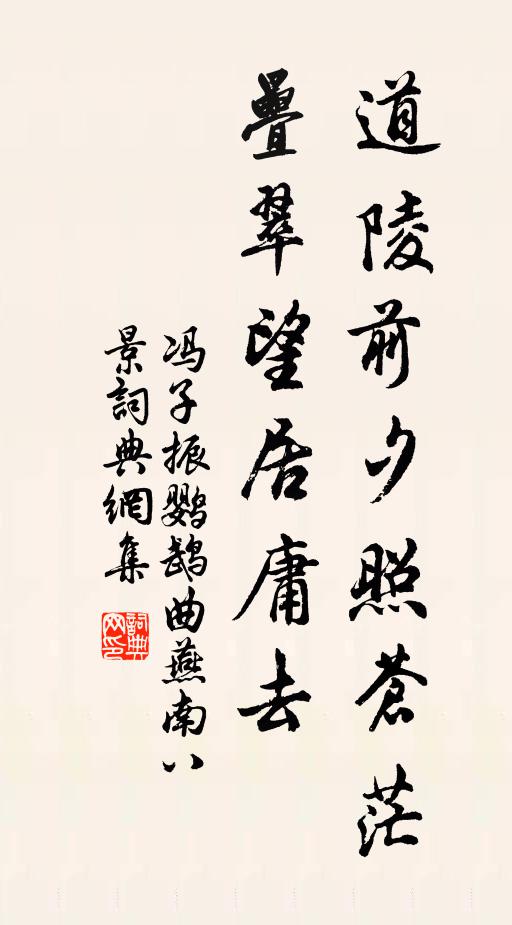 道陵前夕照蒼茫
疊翠望居庸去
冯子振鹦鹉曲燕南八
景詞典網集
詞典网印